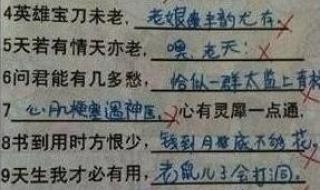 4英雄宝刀未老,老娘风韵尤存.
5天若有情天亦老,嘿,老天:
6问君能有几多愁,恰似一群太监上青楼
7心肌梗塞遇神医,心有灵犀一点通,
8书到用时方恨少,钱到月底不够花,
9天生我才必有用,老鼠儿子会打洞.